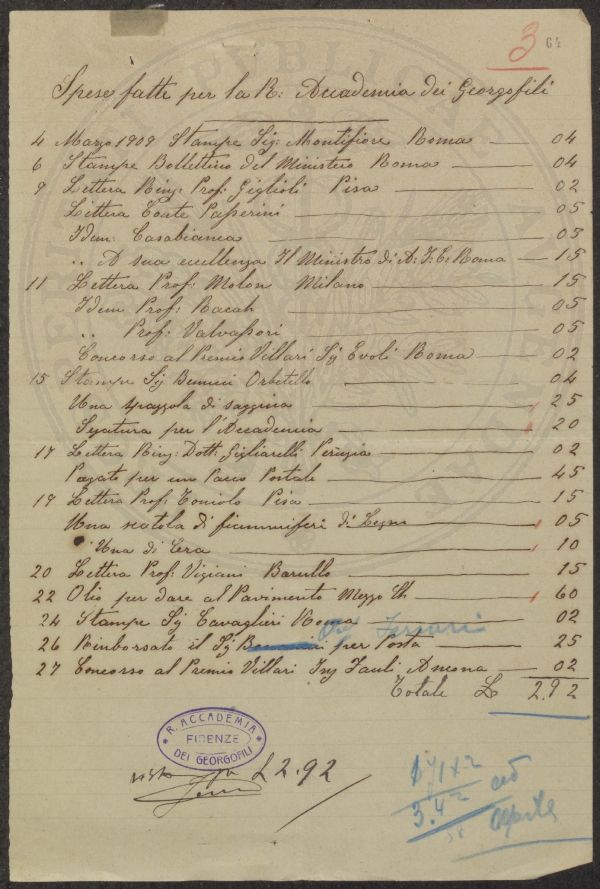 3
64
Spese fatte per la R: Accademia dei Georgofili
4 Marzo 1909 Stampe Sig: Montifiore Roma — 04
6 Stampe Bollettino del Ministero Roma — 04
9 Lettera Ring: Prof: Giglioli Pisa — 02
Lettera Conte Passerini — 05
Idem: Casabianca — 05
,, A sua eccellenza Il Ministro di A: I: C: Roma — 15
11 Lettera Prof: Molon Milano — 15
Idem Prof: Racah — 05
,, Prof: Valvassori — 05
Concorso al Premio Villari Sg Evoli Roma — 02
15 Stampe Sg Orbetello — 04
Una spazzola di saggina — 25
Segatura per l'Accademia — 20
17 Lettera Ring: Dott: Gigliarelli Perugia — 02
Pagato per un Pacco Postale — 45
19 Lettera Prof: Toniolo Pisa — 15
Una scatola di fiammiferi di Legno — 05
Una di Cera — 10
20 Lettera Prof: Vigiani — 15
22 Olio per dare al Pavimento Mezzo — 60
24 Stampe Sg Cavaglieri — 02
26 Rimborsato il Sg per Posta — 25
27 Concorso al Premio Villari Ing Ancona — 02
Totale £ 2.92
R. ACCADEMIA
FIRENZE
DEI GEORGOFILI
visto £ 2.92
3.42
Aprile